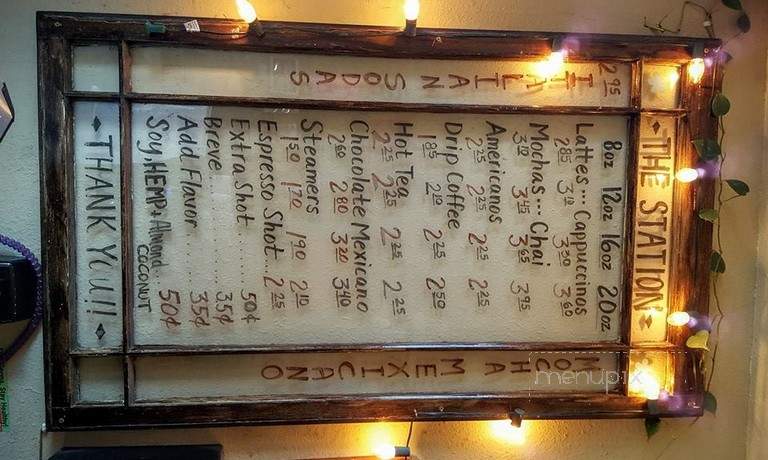 ◆ THE STATION ◆
8oz 12oz 16oz 20oz
Lattes... Cappuccinos
2.85 3.10 3.30 3.60
Mochas... Chai
3.10 3.45 3.65 3.95
Americanos
2.25 2.25 2.25 2.25
Drip Coffee
1.85 2.10 2.25 2.50
Hot Tea
2.25 2.25 2.25 2.25
Chocolate Mexicano
2.60 2.80 3.20 3.40
Steamers
1.50 1.70 1.90 2.10
Espresso Shot... 2.25
Extra Shot ....... 50¢
Breve ........... 35¢
Add Flavor ....... 35¢
Soy, HEMP + Almond 50¢
COCONUT
◆ THANK YOU!! ◆
2.95
ITALIAN SODAS
MOCHA MEXICANO
menupix